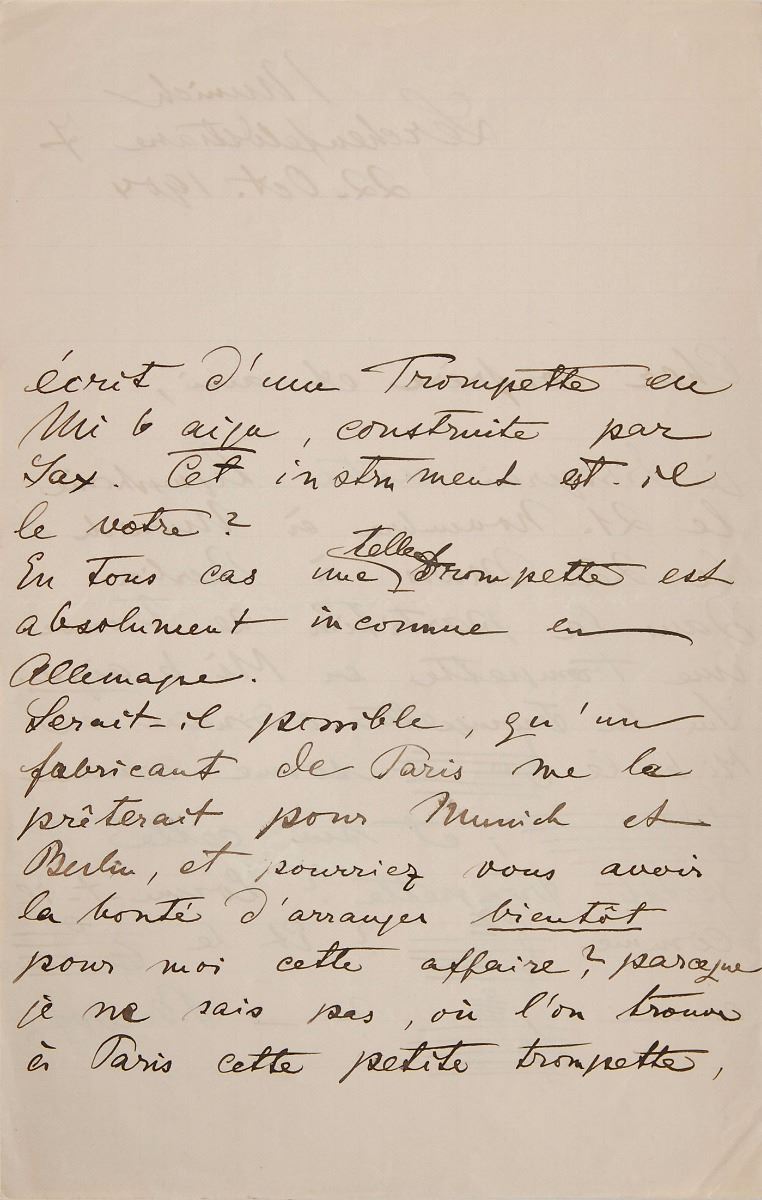 écrit d'une Trompette en
Mi b aigu, construite par
Sax. Cet instrument est-il
le votre?
En tous cas une telle trompette est
absolument inconnue en
Allemagne.
Serait-il possible, qu'un
fabricant de Paris me la
prêterait pour Munich et
Berlin, et pourriez vous avoir
la bonté d'arranger bientôt
pour moi cette affaire? parceque
je ne sais pas, où l'on trouve
à Paris cette petite trompette,